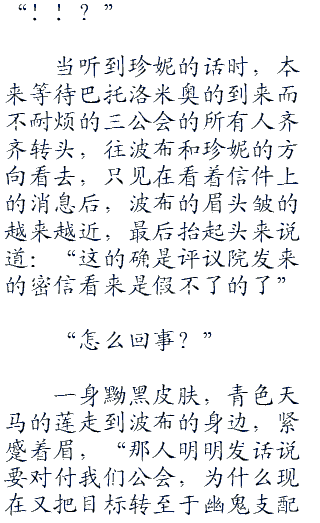 “！！？”
当听到珍妮的话时，本
来等待巴托洛米奥的到来而
不耐烦的三公会的所有人齐
齐转头，往波布和珍妮的方
向看去，只见在看着信件上
的消息后，波布的眉头皱的
越来越近，最后抬起头来说
道：“这的确是评议院发来
的密信看来是假不了的了”
“怎么回事？”
一身黝黑皮肤，青色天
马的莲走到波布的身边，紧
蹙着眉，“那人明明发话说
要对付我们公会，为什么现
在又把目标转至于幽鬼支配